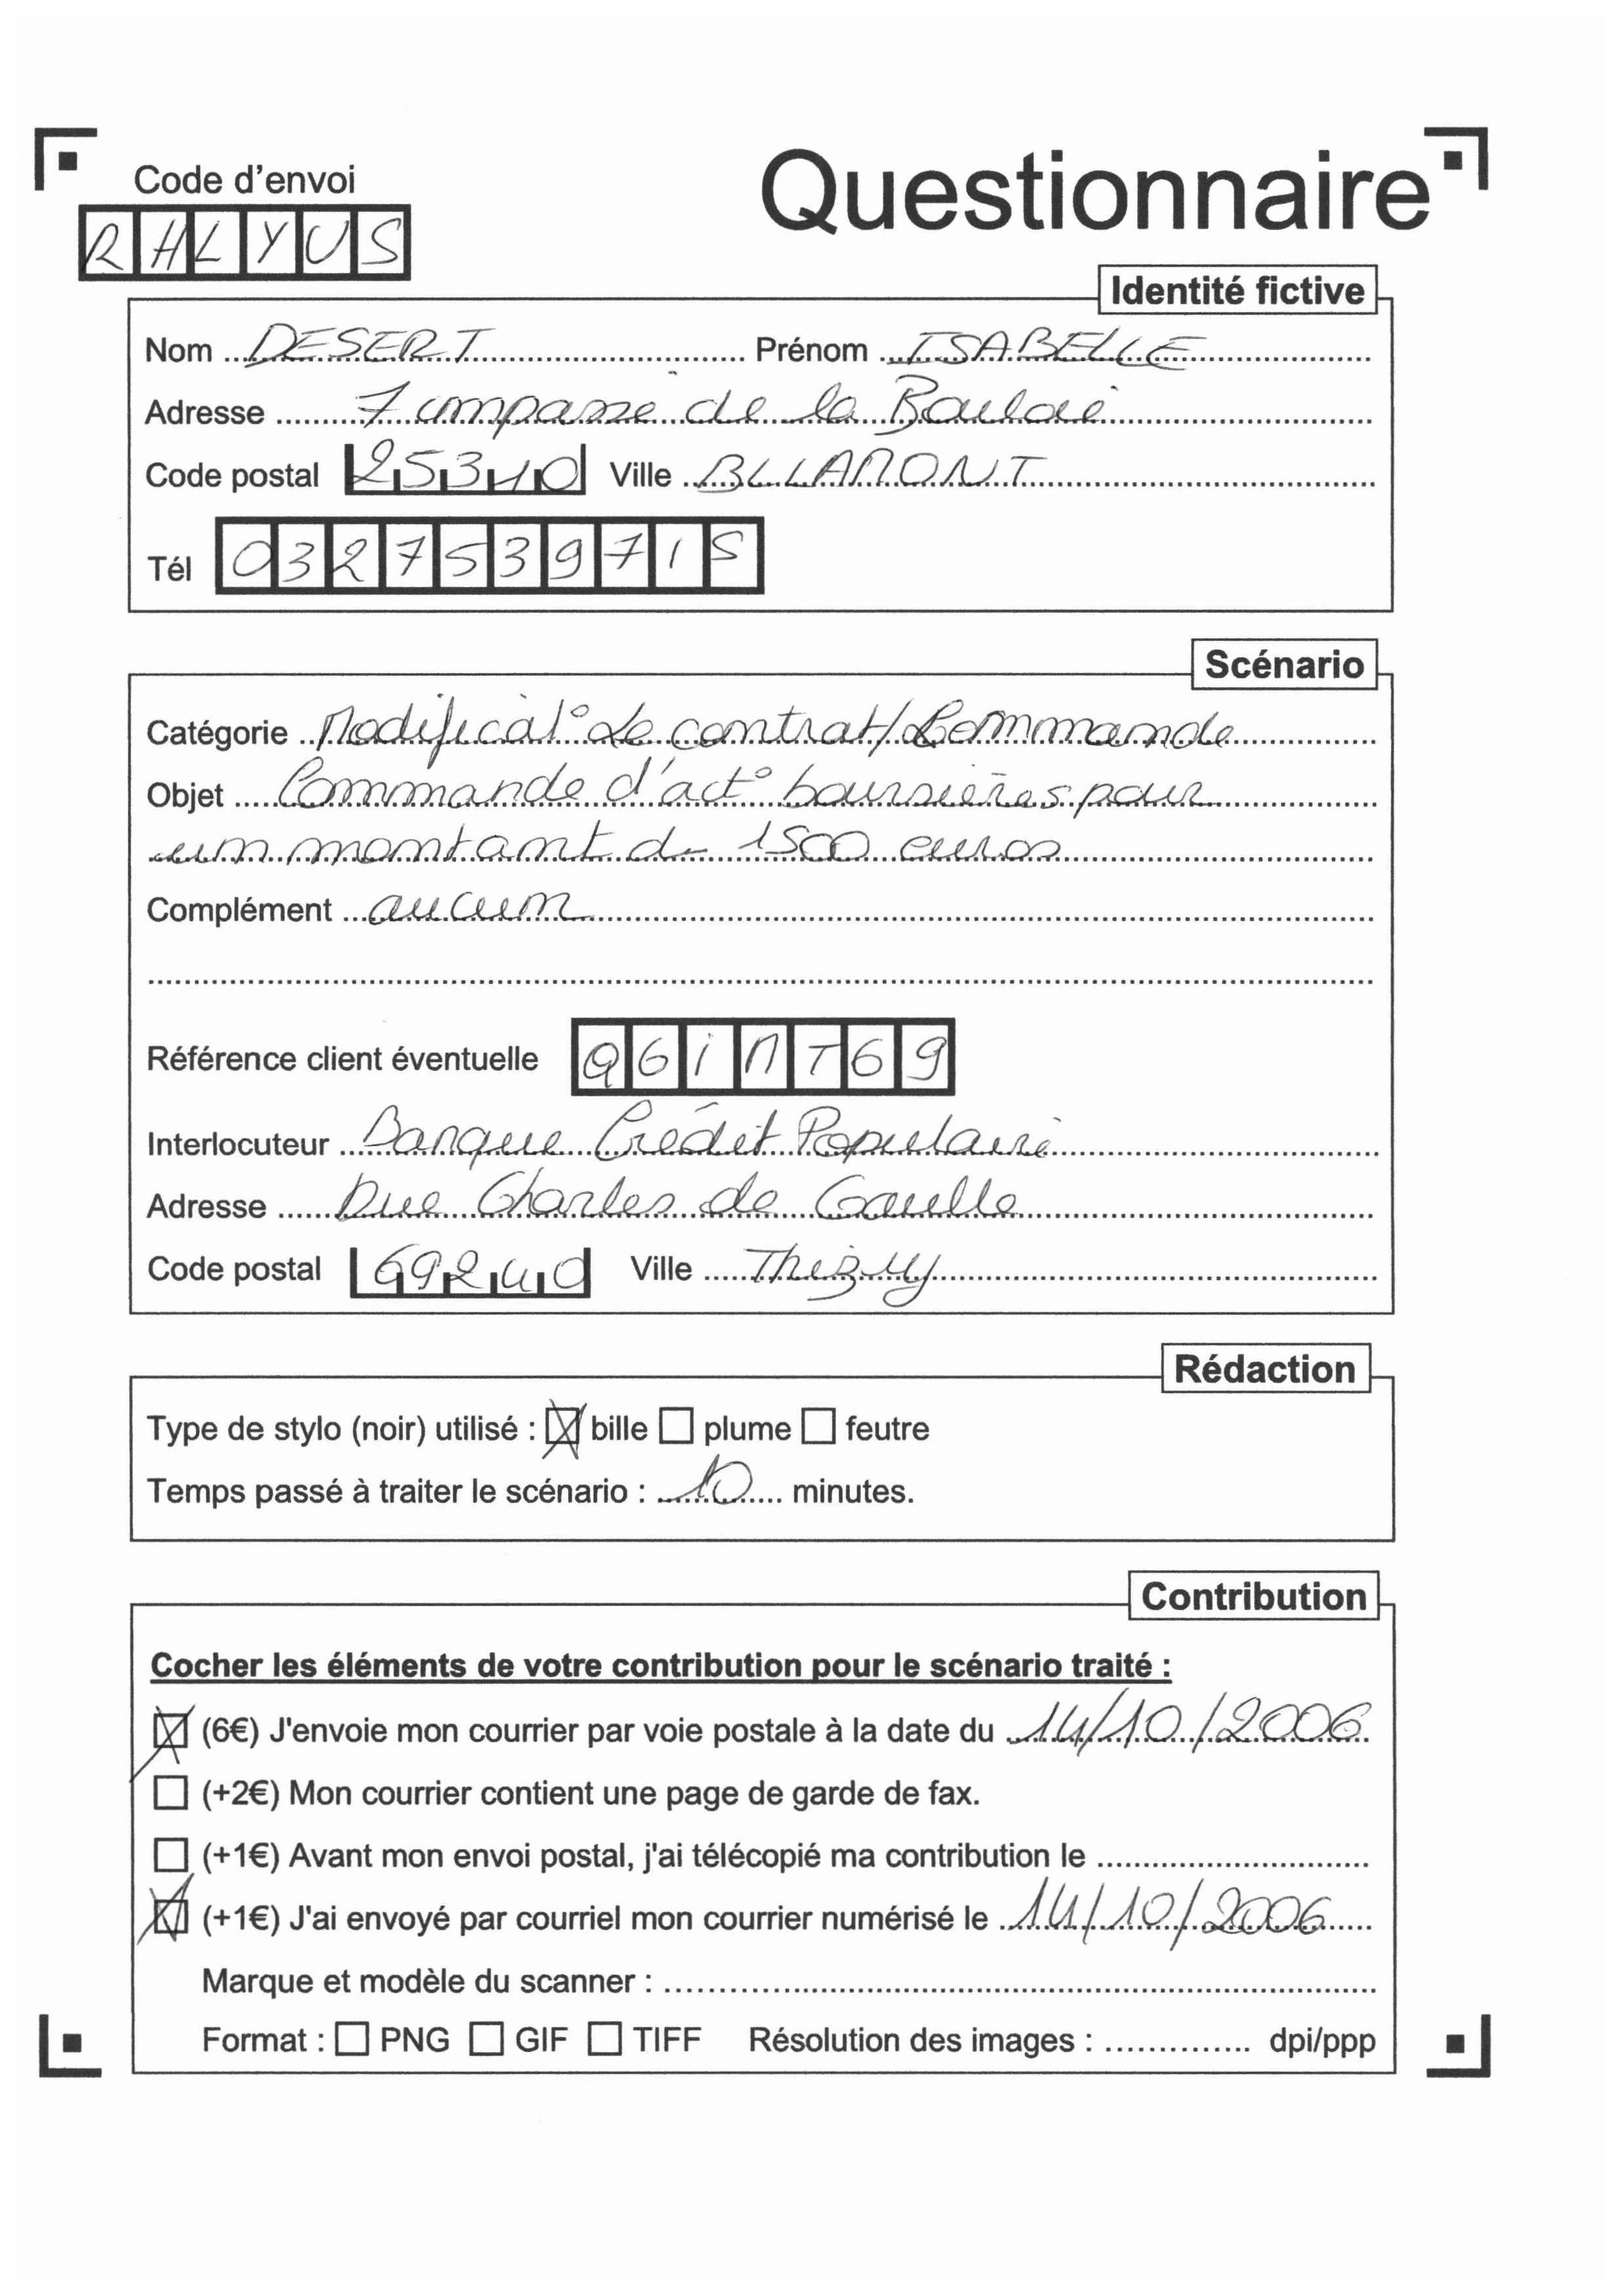 Code d'envoi
Questionnaire
RHLYUS
Identité fictive
Nom DESERT Prénom ISABELLE
Adresse 7 impasse de la Boulaie
Code postal 25310 Ville BLLAMONT
Tél 0327539715
Scénario
Catégorie Modificat° de contrat/Commande
Objet Commande d'act° boursières pour
un montant de 1500 euros
Complément aucun
Référence client éventuelle QGiMT69
Interlocuteur Banque Crédit Populaire
Adresse Rue Charles de Gaulle
Code postal 69240 Ville Thizy
Rédaction
Type de stylo (noir) utilisé : bille plume feutre
Temps passé à traiter le scénario : 10 minutes.
Contribution
Cocher les éléments de votre contribution pour le scénario traité :
(6€) J'envoie mon courrier par voie postale à la date du 14/10/2006
(+2€) Mon courrier contient une page de garde de fax.
(+1€) Avant mon envoi postal, j'ai télécopié ma contribution le
(+1€) J'ai envoyé par courriel mon courrier numérisé le 14/10/2006
Marque et modèle du scanner :
Format : PNG GIF TIFF Résolution des images : dpi/ppp